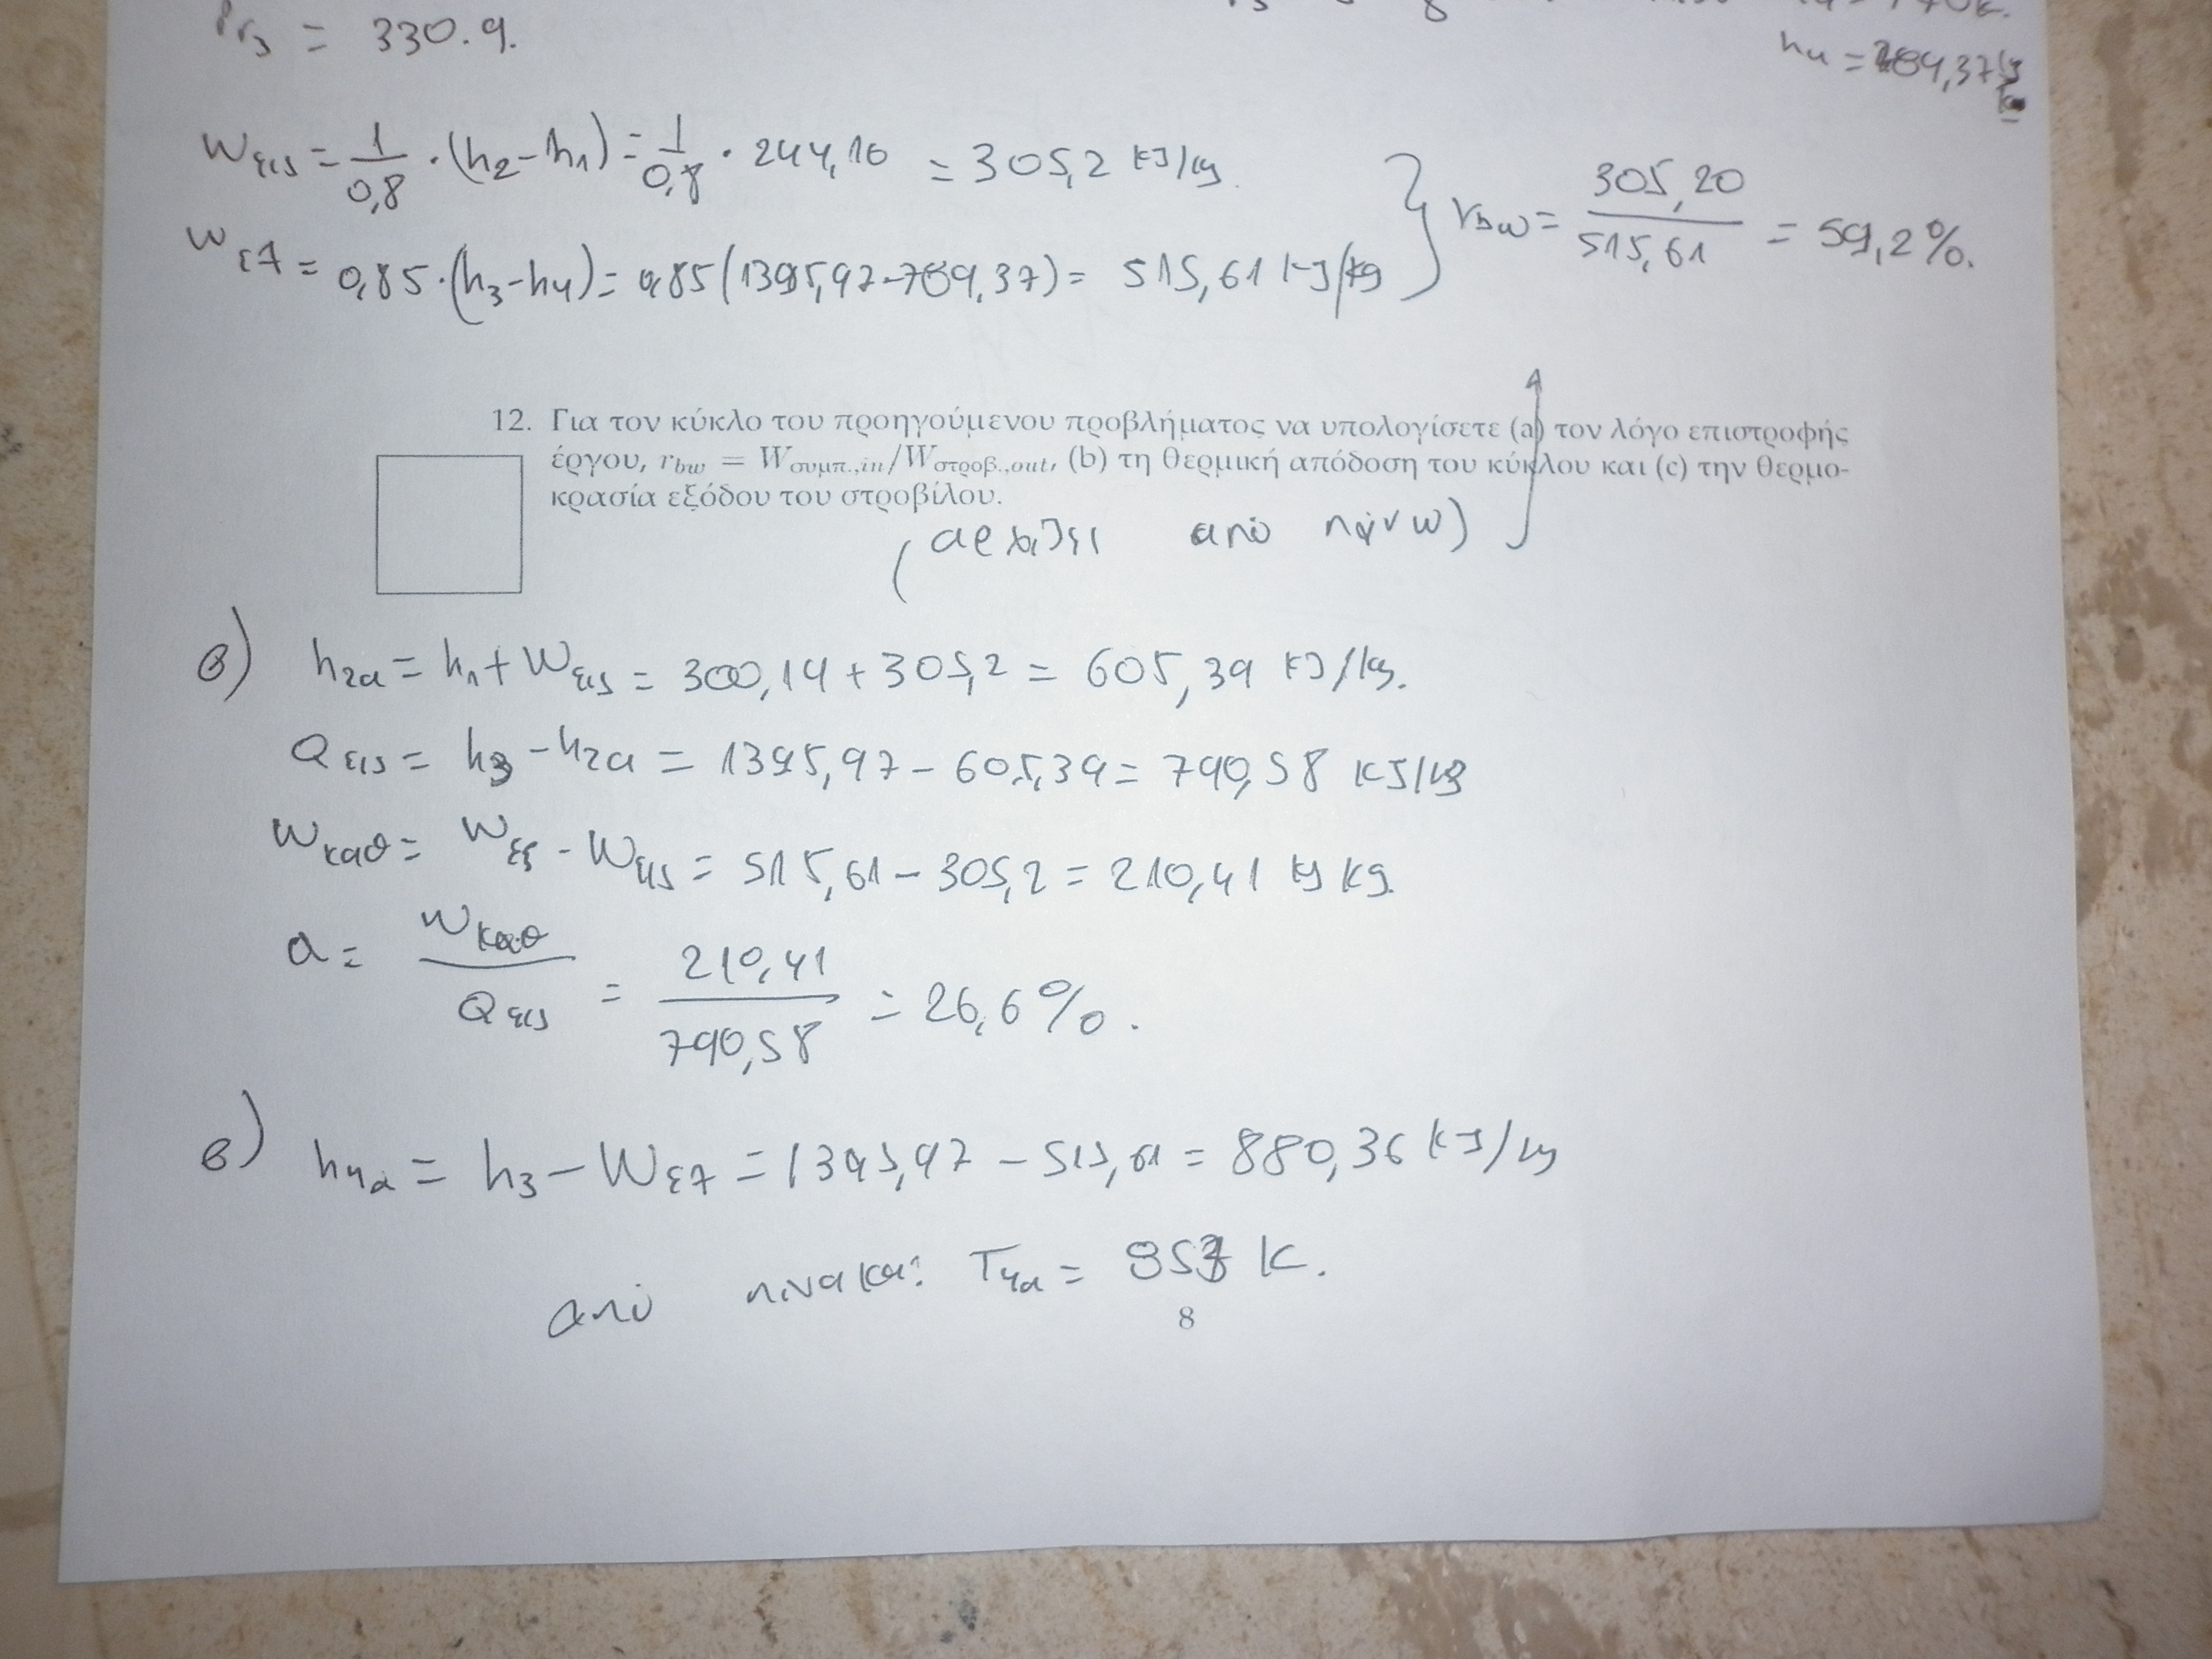 Pr₃ = 330.9.
h₄ = 789,37
Wεις = 1/0,8 · (h₂-h₁) = 1/0,8 · 244,16 = 305,2 kJ/kg.
Wεξ = 0,85·(h₃-h₄) = 0,85(1395,97-789,37) = 515,61 kJ/kg
} rbw = 305,20/515,61 = 59,2%.
12. Για τον κύκλο του προηγούμενου προβλήματος να υπολογίσετε (a) τον λόγο επιστροφής
έργου, rbw = Wσυμπ.,in/Wστροβ.,out, (b) τη θερμική απόδοση του κύκλου και (c) την θερμο-
κρασία εξόδου του στροβίλου.
(αρχίζει από πάνω)
β) h₂ₐ = h₁ + Wεις = 300,19 + 305,2 = 605,39 kJ/kg.
Qεις = h₃ - h₂ₐ = 1395,97 - 605,39 = 790,58 kJ/kg
Wκαθ = Wεξ - Wεις = 515,61 - 305,2 = 210,41 kJ kg.
α = Wκαθ/Qεις = 210,41/790,58 = 26,6%.
β) h₄ₐ = h₃ - Wεξ = 1395,97 - 515,61 = 880,36 kJ/kg
από πινακα: T₄ₐ = K.
8